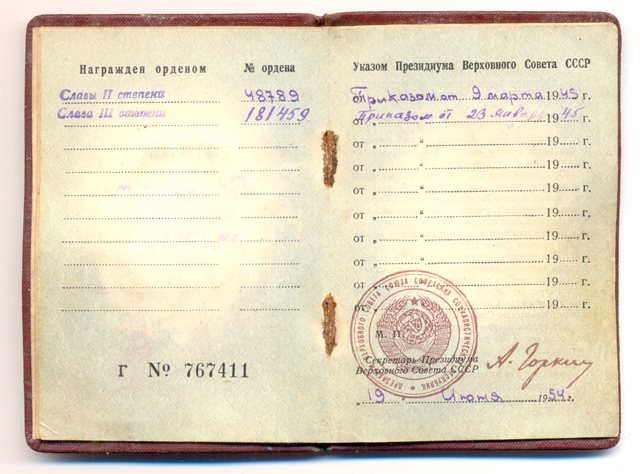 Награжден орденом
№ ордена
Славы II степени
48789
Слава III степени
181459
Г № 767411
Указом Президиума Верховного Совета СССР
от Приказом от 9 марта 1945 г.
от Приказом от 23 января 1945 г.
от „ “ 19 г.
от „ “ 19 г.
от „ “ 19 г.
от „ “ 19 г.
от „ “ 19 г.
от „ “ 19 г.
от „ “ 19 г.
от „ 19 г.
М. П.
Секретарь Президиума
Верховного Совета СССР
А. Горкин
„19 “ Июня 1954 г.